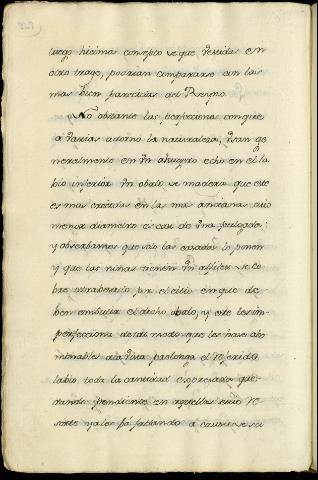 luego hicimos consepto de que vestidas en
otro trage, podrian compararse con las
mas bien parecidas del Reyno.
No obstante las perfecciones con que
a varias adornó la naturaleza, usan ge
neralmente en un ahugero echo en el la
bio inferior un obalo de madera que este
es mas crecidas en las mas ancianas cuio
menor diametro es casi de una pulgada:
y observamos que solo las casadas lo ponen
y que las niñas tienen un alfiler de co
bre atrabesado por el citio en que de
ben embutir el dicho obalo, y este les im-
perfecciona de tal modo que les hace abo
minables a la vista prolonga el referido
labio toda la cantidad expresada que-
dando pendiente en aquellas cuio re
sorte ya les há faltando a causa de su